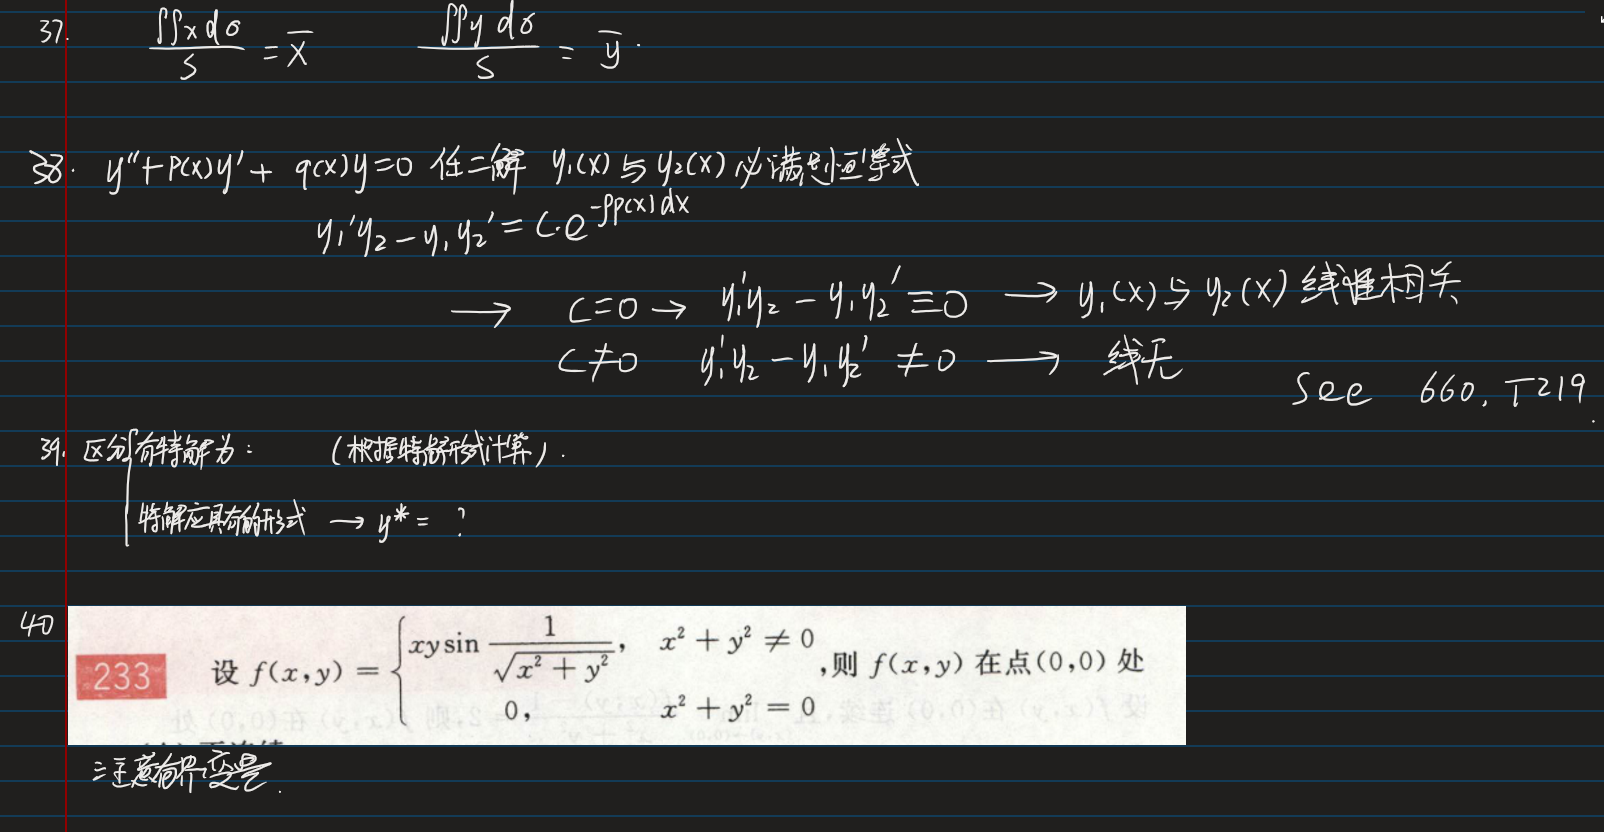 37. ∬x dσ / S = x̄    ∬y dσ / S = ȳ.
38. y″+P(x)y′+ q(x)y=0 任二解 y₁(x) 与 y₂(x) 必满足恒等式
y₁′y₂ − y₁y₂′ = C·e^(−∫p(x)dx)
→ C=0 → y₁′y₂ − y₁y₂′ ≡ 0 → y₁(x) 与 y₂(x) 线性相关
C≠0 y₁′y₂ − y₁y₂′ ≠ 0 → 线无
See 660, T219.
39. 区分{有特解为: (根据特解形式计算).
特解应具有的形式 → y* = ?
40
233 设 f(x,y) = { xy sin 1/√(x² + y²), x² + y² ≠ 0
0, x² + y² = 0 ,则 f(x,y) 在点(0,0) 处
注意有界变量.